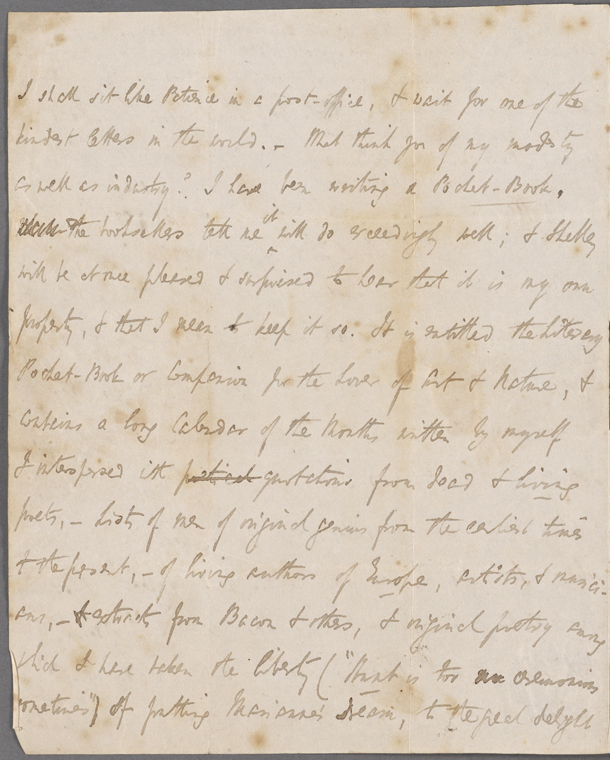 I shall sit like Patience in a post-office, & wait for one of the
kindest letters in the world. – What think you of my modesty
as well as industry? I have been writing a Pocket-Book,
the booksellers tell me it will do exceedingly well; & Shelley
will be at once pleased & surprised to hear that it is my own
property, & that I mean to keep it so. It is entitled the Literary
Pocket-Book or Companion for the Lover of Art & Nature, &
contains a long Calendar of the Months written by myself
& interspersed with poetical quotations from dead & living
poets, – Lists of men of original genius from the earliest times
to the present, – of living authors of Europe, artists, & musici-
ans, – & extracts from Bacon & others, & original poetry among
which I have taken the liberty ("Hunt is too unceremonious
sometimes") of putting Marianne's Dream, to the great delight